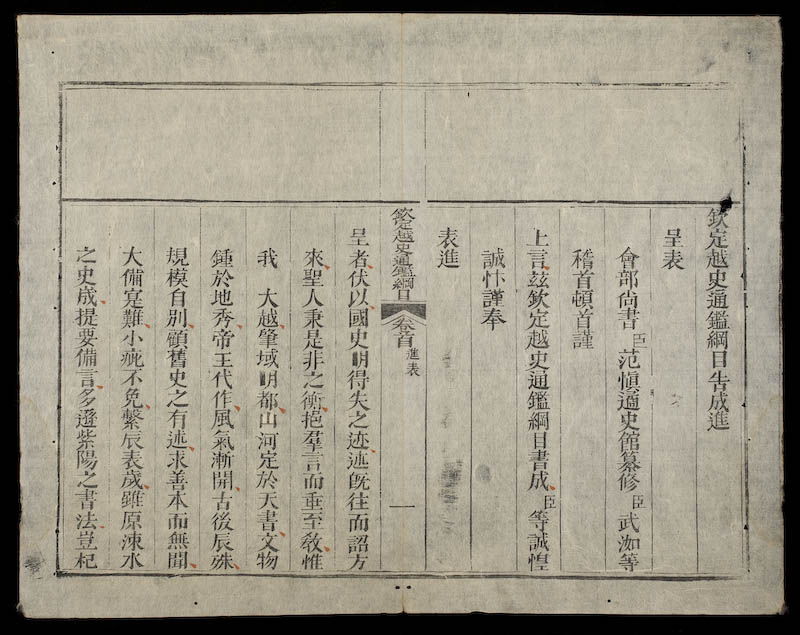 欽定越史通鑑綱目告成進
呈表
會部尚書臣范慎遹史館纂修臣武洳等
稽首頓首謹
上言玆欽定越史通鑑綱目書成臣等誠惶
誠忭謹奉
表進
欽定越史通鑑綱目 卷首 進表 一
呈者伏以國史明得失之迹述旣往而詔方
來聖人秉是非之衡挹羣言而垂至敎惟
我 大越肇域明都山河定於天書文物
鍾於地秀帝王代作風氣漸開古後辰殊
規模自別顧舊史之有述求善本而無聞
大備寔難小疵不免繫辰表歲雖原涑水
之史成提要備言多遜紫陽之書法豈杞